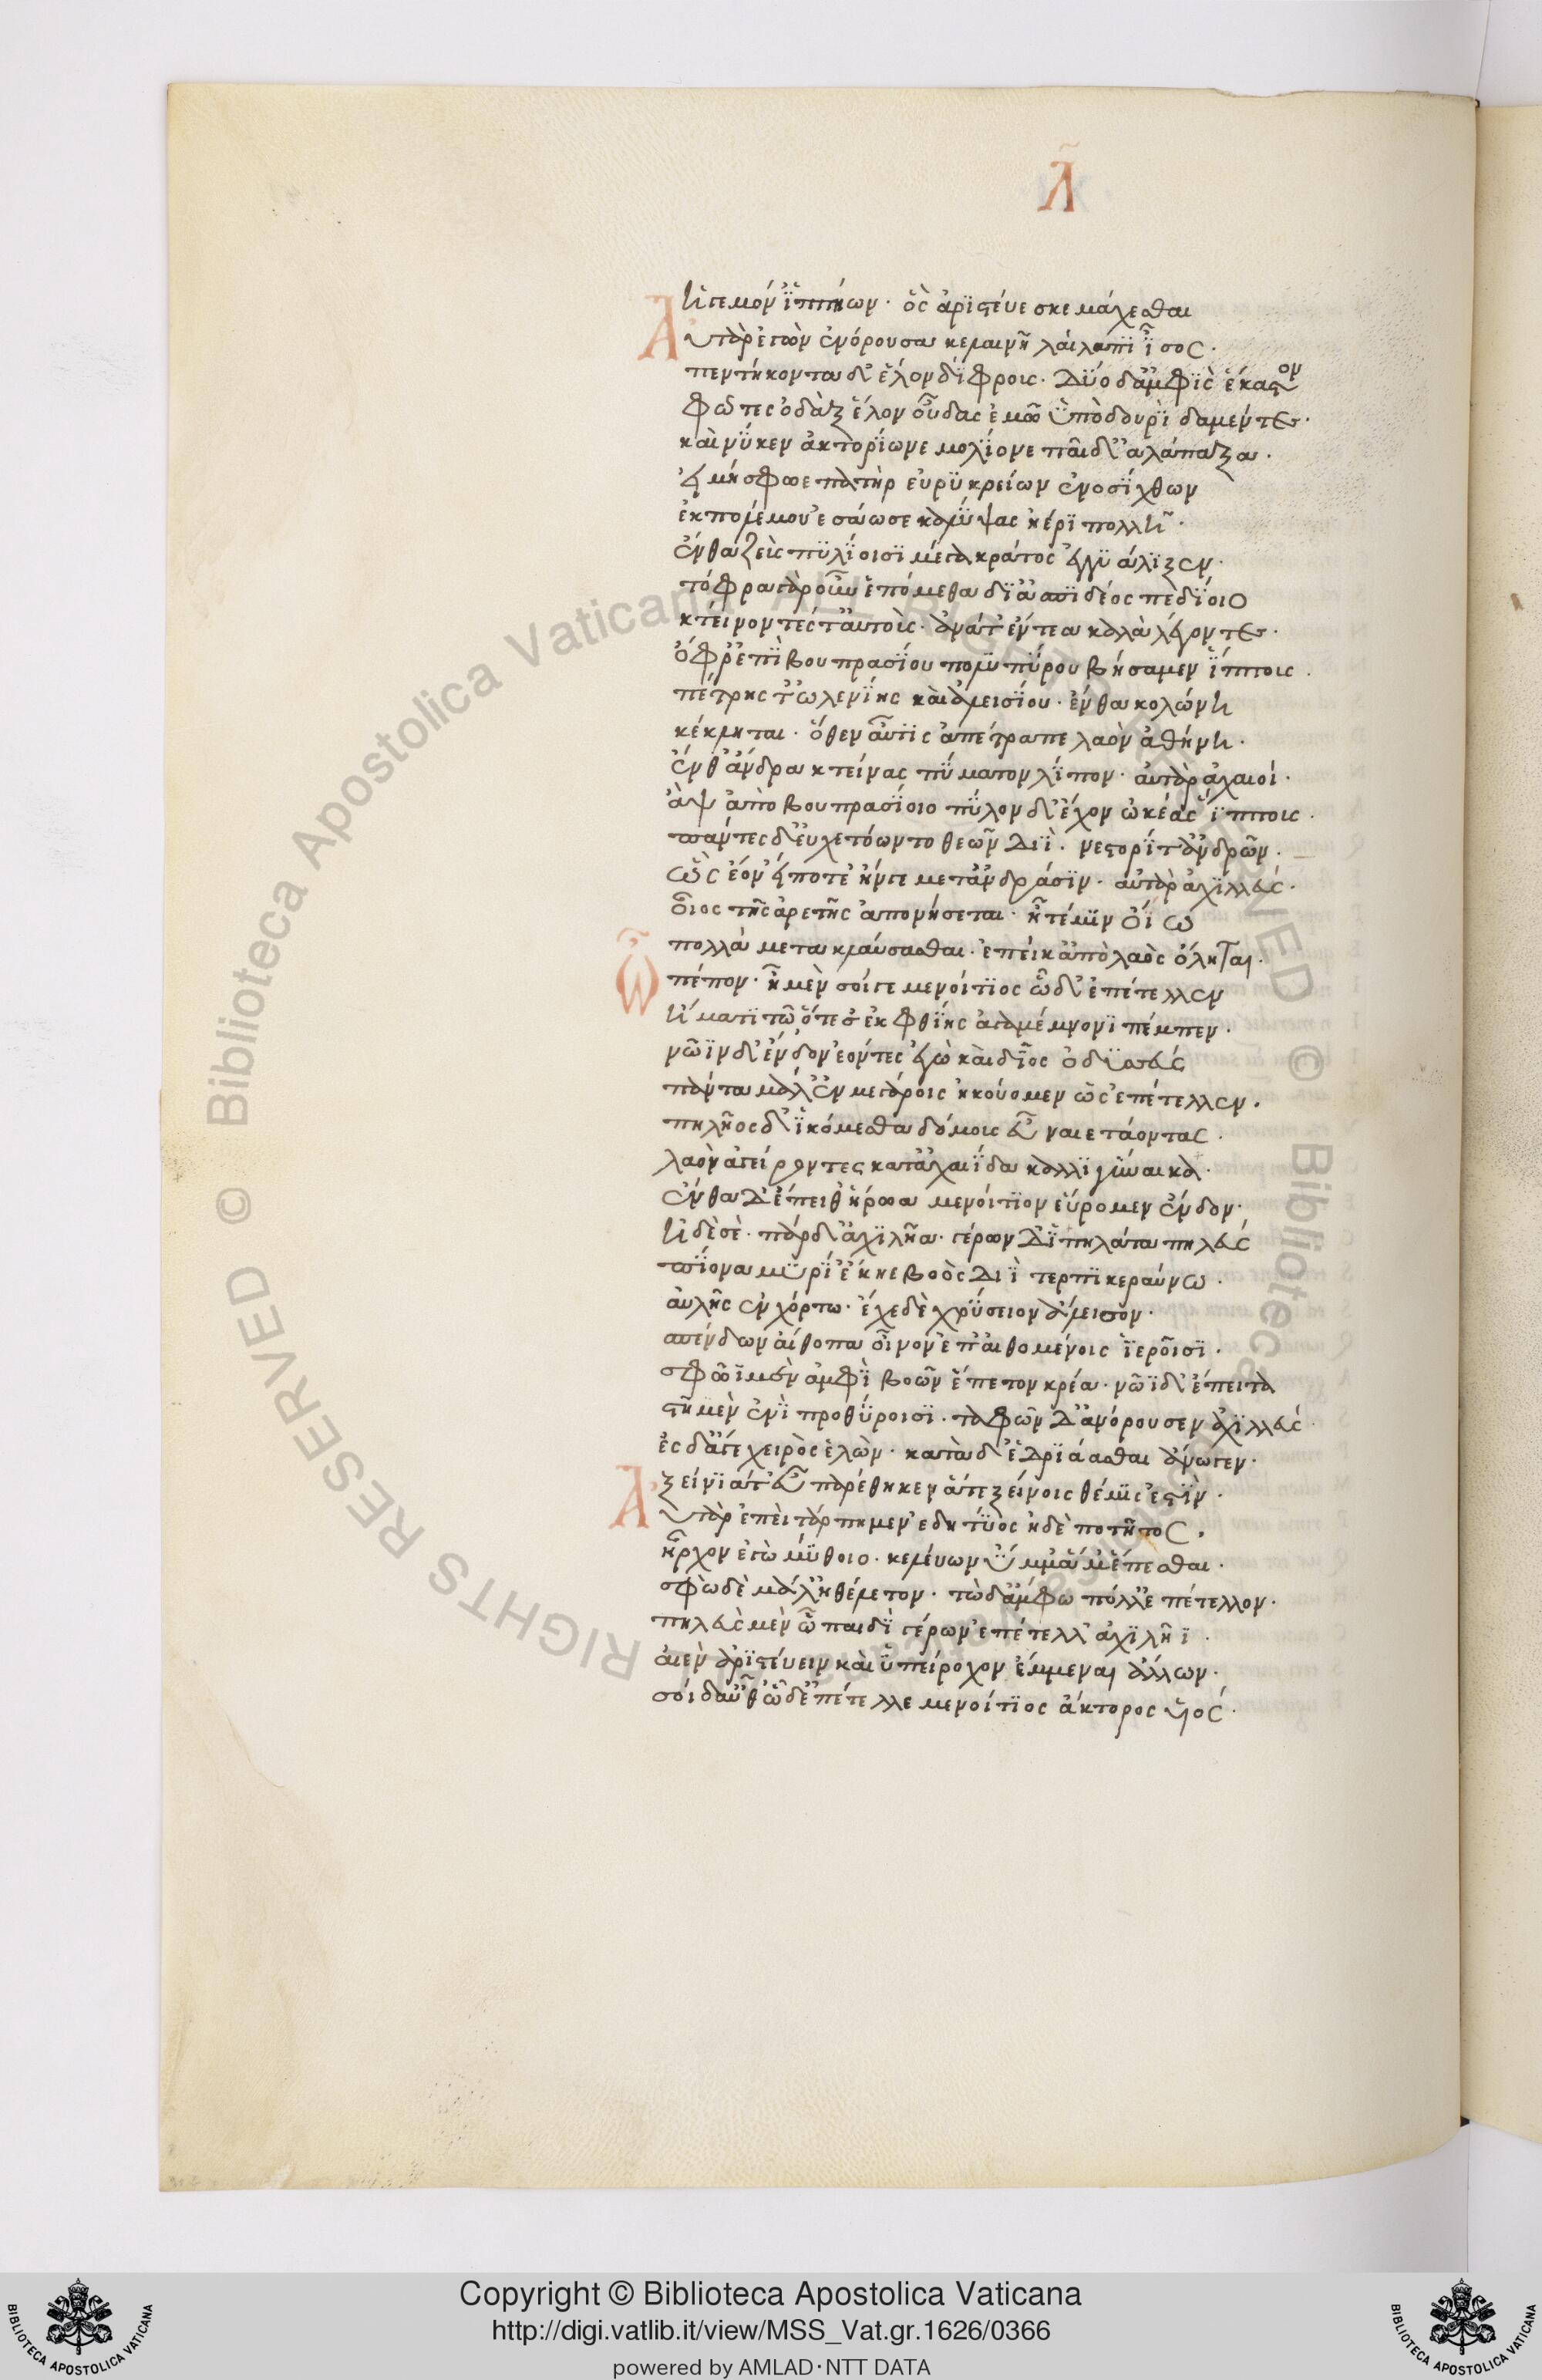 Λ
ἡγεμόν ἱππήων· ὃς ἀριστεύεσκε μάχεσθαι
Αὐτὰρ ἐγὼν ἐνόρουσα κελαινῇ λαίλαπι ἶσος·
πεντήκοντα δ' ἕλον δίφρους· δύο δ' ἀμφὶς ἕκαστον
φῶτες ὀδὰξ ἕλον οὖδας ἐμῶ ὑπὸ δουρὶ δαμέντες·
καὶ νύ κεν ἀκτορίωνε μολίονε παῖδ' ἀλάπαξα·
εἰ μή σφωε πατὴρ εὐρὺ κρείων ἐνοσίχθων
ἐκ πολέμου ἐσάωσε καλύψας ἠέρι πολλῇ·
ἔνθα ζεὺς πυλίοισι μέγα κράτος ἐγγυάλιξεν·
τόφρα γὰρ οὖν ἑπόμεθα διὰ σπιδέος πεδίοιο
κτείνοντές τ' αὐτούς· ἀνά τ' ἔντεα καλὰ λέγοντες·
ὄφρ' ἐπὶ βουπρασίου πολυπύρου βήσαμεν ἵππους·
πέτρης τ' ὠλενίης καὶ ἀλεισίου· ἔνθα κολώνη
κέκληται· ὅθεν αὖτις ἀπέτραπε λαὸν ἀθήνη·
ἔνθ' ἄνδρα κτείνας πύματον λίπον· αὐτὰρ ἀχαιοί·
ἂψ ἀπὸ βουπρασίοιο πύλον δ' ἔχον ὠκέας ἵππους·
πάντες δ' εὐχετόωντο θεῶν Διὶ· νέστορί τ' ἀνδρῶν·
ὣς ἔον εἴ ποτ' ἔην γε μετ' ἀνδράσιν· αὐτὰρ ἀχιλλεὺς·
οἶος τῆς ἀρετῆς ἀπονήσεται· ἦ τέ μιν οἴω
πολλὰ μετακλαύσασθαι· ἐπεί κ' ἀπὸ λαὸς ὄληται·
Ὦ πέπον· ἦ μὲν σοί γε μενοίτιος ὧδ' ἐπέτελλεν
ἤματι τῶ ὅτε σ' ἐκ φθίης ἀγαμέμνονι πέμπεν·
νῶϊν δ' ἔνδον ἐόντες ἐγὼ καὶ δῖος ὀδυσσεὺς
πάντα μάλ' ἐν μεγάροις ἠκούομεν ὡς ἐπέτελλεν·
πηλῆος δ' ἱκόμεσθα δόμους εὖ ναιετάοντας·
λαὸν ἀγείροντες κατ' ἀχαιίδα καλλιγύναικα·
ἔνθα δ' ἔπειθ' ἥρωα μενοίτιον εὕρομεν ἔνδον·
ἠδὲ σὲ· πὰρ δ' ἀχιλῆα· γέρων δ' ἱππηλάτα πηλεὺς
πίονα μηρί' ἔκηε βοὸς Διὶ τερπικεραύνω·
αὐλῆς ἐν χόρτω· ἔχε δὲ χρύσειον ἄλεισον·
σπένδων αἴθοπα οἶνον ἐπ' αἰθομένοις ἱεροῖσι·
σφῶϊ μὲν ἀμφὶ βοῶν ἕπετον κρέα· νῶϊ δ' ἔπειτα
στῆμεν ἐνὶ προθύροισι· ταφὼν δ' ἀνόρουσεν ἀχιλλεὺς·
ἐς δ' ἄγε χειρὸς ἑλὼν· κατὰ δ' ἑδριάασθαι ἄνωγεν·
ξείνιά τ' εὖ παρέθηκεν ἅ τε ξείνοις θέμις ἐστὶν·
Αὐτὰρ ἐπεὶ τάρπημεν ἐδητύος ἠδὲ ποτῆτος·
ἦρχον ἐγὼ μύθοιο· κελεύων ὔμμ' ἅμ' ἕπεσθαι·
σφὼ δὲ μάλ' ἠθέλετον· τὼ δ' ἄμφω πόλλ' ἐπέτελλον·
πηλεὺς μὲν ὧ παιδὶ γέρων ἐπέτελλ' ἀχιλῆϊ·
αἰὲν ἀριστεύειν καὶ ὑπείροχον ἔμμεναι ἄλλων·
σοὶ δ' αὖθ' ὧδ' ἐπέτελλε μενοίτιος ἄκτορος υἱὸς·
© Biblioteca Apostolica Vaticana ALL RIGHTS RESERVED
Copyright © Biblioteca Apostolica Vaticana
http://digi.vatlib.it/view/MSS_Vat.gr.1626/0366
powered by AMLAD·NTT DATA
BIBLIOTECA APOSTOLICA VATICANA
BIBLIOTECA APOSTOLICA VATICANA